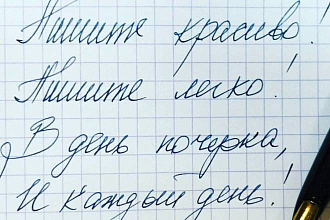 Пишите красиво!
Пишите легко!
В день почерка,
И каждый день!